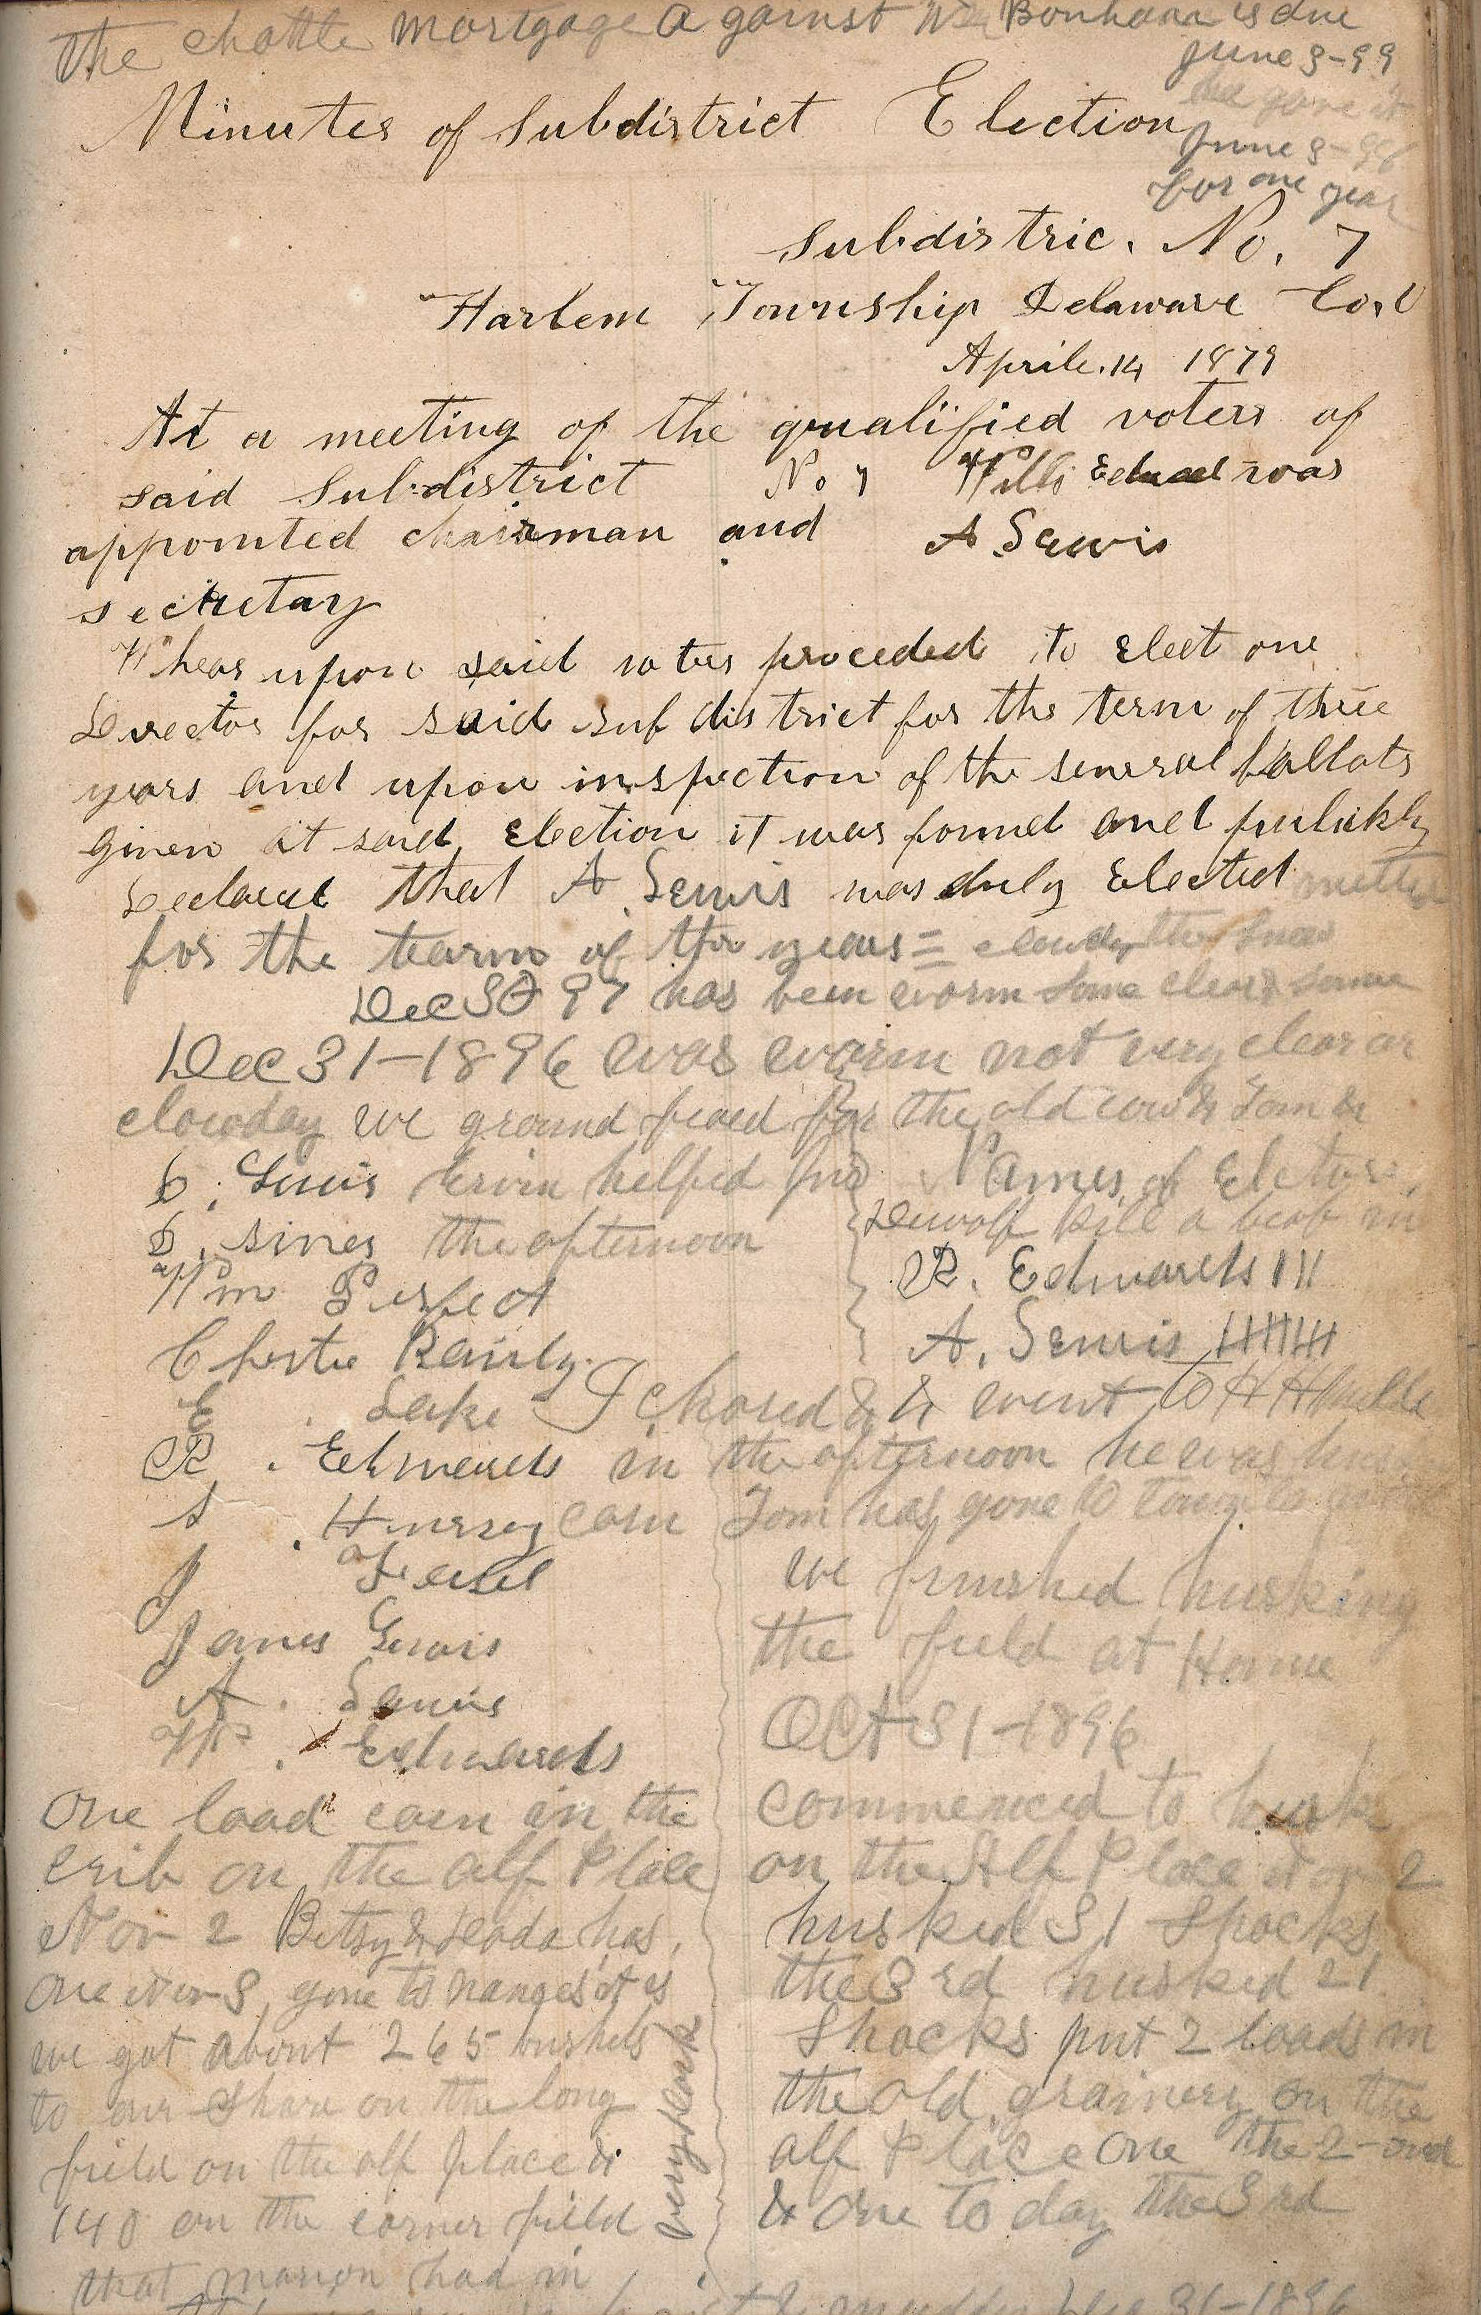 The chattle mortgage against Wm Bonham is due
June 3-99
we gave it
June 3-98
for one year
Minutes of Subdistrict Election
Subdistric. No. 7
Harlem Township Delaware Co. O
Aprile. 14 1879
At a meeting of the qualified voters of
said Subdistrict No 7 Willi Edward was
appointed chairman and A Lewis
secretary
Whear upon said voters proceded to elect one
Director for said sub district for the term of three
years and upon inspection of the several ballots
given at said election it was found and publickly
Declared that A Lewis was duly Elected
for the tearm of thre years = clowdy the snow
Dec 30 97 has been warm some clear & some
Dec 31-1896 was warm not very clear or
clowday we ground feaed for the old cow & Tom &
G. Lewis Ervin helped fore
Names of Electors
G. Sines the afternoon
Dewolf kill a beaf in
Wm Purfect
R. Edwards III
Chester Bairly
A. Lewis IIIIIII
E. Lake I chored & & went to H H
R. Edwards in the afternoon he was
S. Hursey corn Tom has gone to town to
J Feasel
we finished husking
James Lewis
the field at Home
A. Lewis
Oct 31-1896
W. Edwards
one load corn in the
crib on the alf Place
Nov 2 Betsy & has
one Nov 3 gone to
we got about 265 bushels
to our Share on the long
field on the alf place &
140 on the corner field
that marion had in
every
commenced to husk
on the Alf Place Nov 2
husked 31 Shocks
the 3rd husked 21
Shocks put 2 loads in
the old grainery on the
alf Place one the 2-ond
& one to day the 3rd
muddy Dec 31-1896